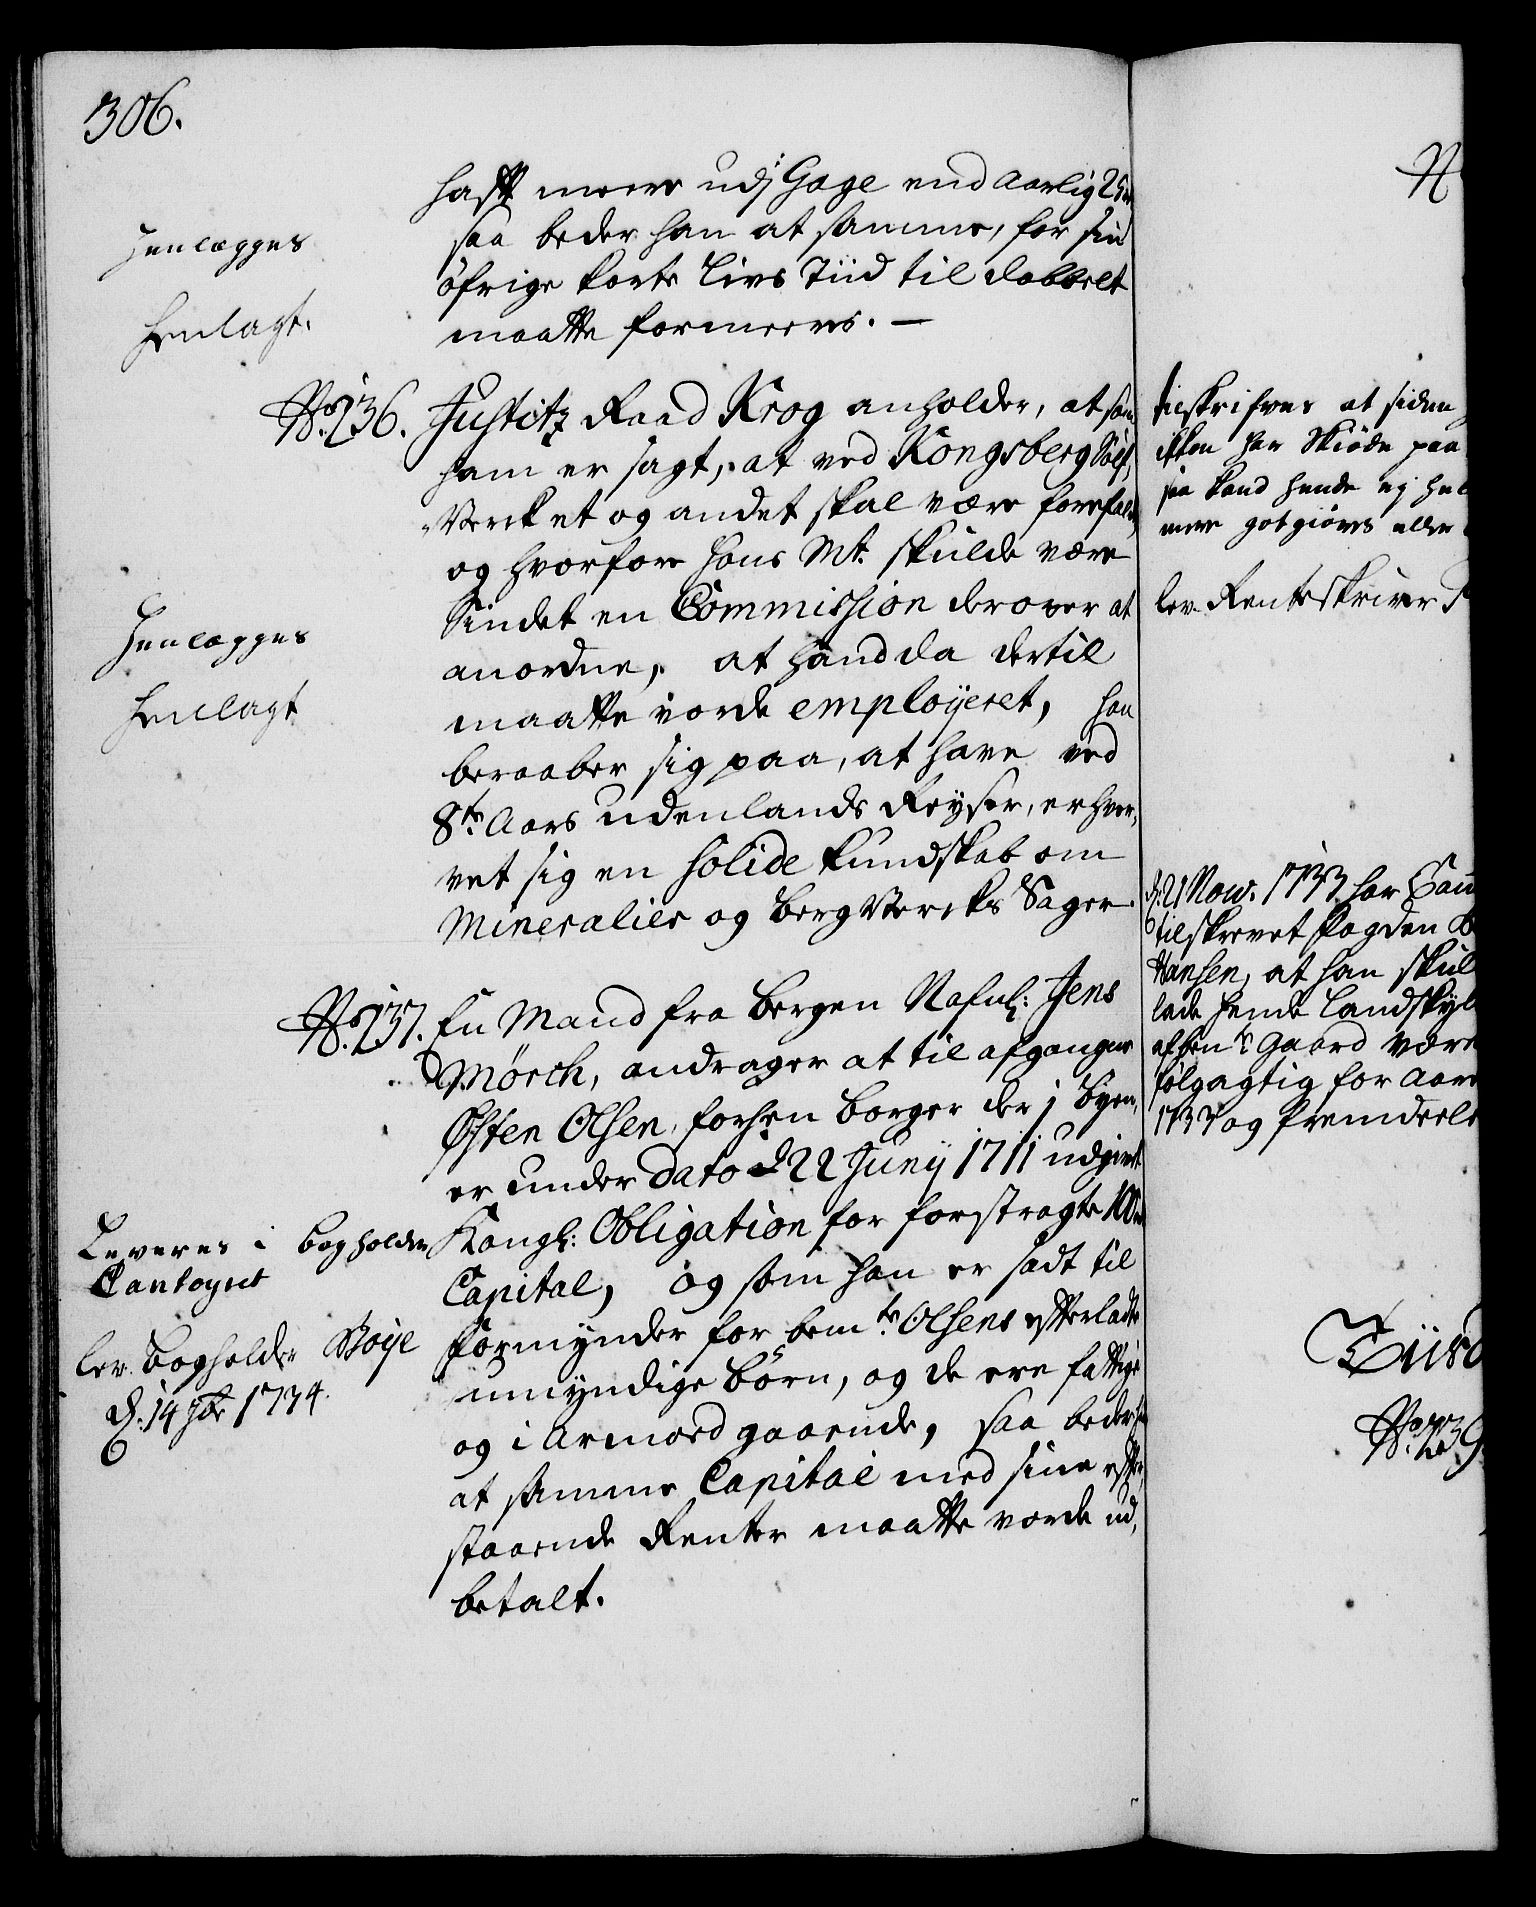 306.
hafft meere udj Gage end aarlig 25 rd
saa beder han at samme, for sin
öfrige korte Livs Tiid til dobbelt
maatte formeeres. —
Henlægges
Henlagt.
No 236. Justitz Raad Krog anholder, at som
ham er sagt, at ved Kongsberg Sölf,
Verck et og andet skal være forefalden,
og hvorfore Hans Mt. skulde være
Sindet en Commission derover at
anordne, at hand da dertil
maatte vorde employeret, han
beraaber sig paa, at have ved
8te Aars udenlands Reyser, erhver,
vet sig en solide kundskab om
Mineralier og BergVercks Sager.
Henlægges
Henlagt
No 237. En Mand fra Bergen Nafnl: Jens
Mörch, andrager at til afgangne
Østen Olsen, forhen borger der j Byen,
er under dato d 22 Junij 1711 udgivet
Kongl: Obligation for forstragte 100 rd
Capital, og som han er sadt til
Formynder for bemte Olsens efterladte
umyndige Börn, og de ere fattige
og i Armoed gaaende, saa beder han
at samme Capital med sine efter,
staaende Renter maatte vorde ud,
betalt.
Leveres i Bogholder
Contoyret
lev. Bogholder Boye
d. 14 Jbr 1734.
N
Tilskrifves at siden
ikken har Skiöde paa
saa kand hende ej hel
mere gotgiöres eller
lev. Renteskriver
d. 21 Nov. 1733 har
tilskrevet fogden
Hansen, at han skul
lade hende Landskyl
af bemte Gaard være
fölgagtig for Aar
1737 og fremdeele
Tiisd
No 239